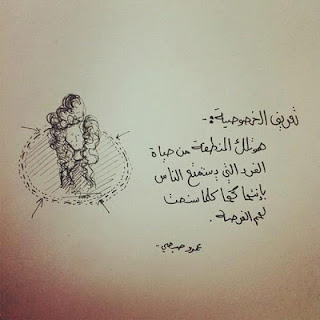 تعريف الخصوصية :-
هو تلك المنطقة من حياة
الفرد التي يستمتع الناس
بإنتهاكها كلما سنحت
لهم الفرصة .